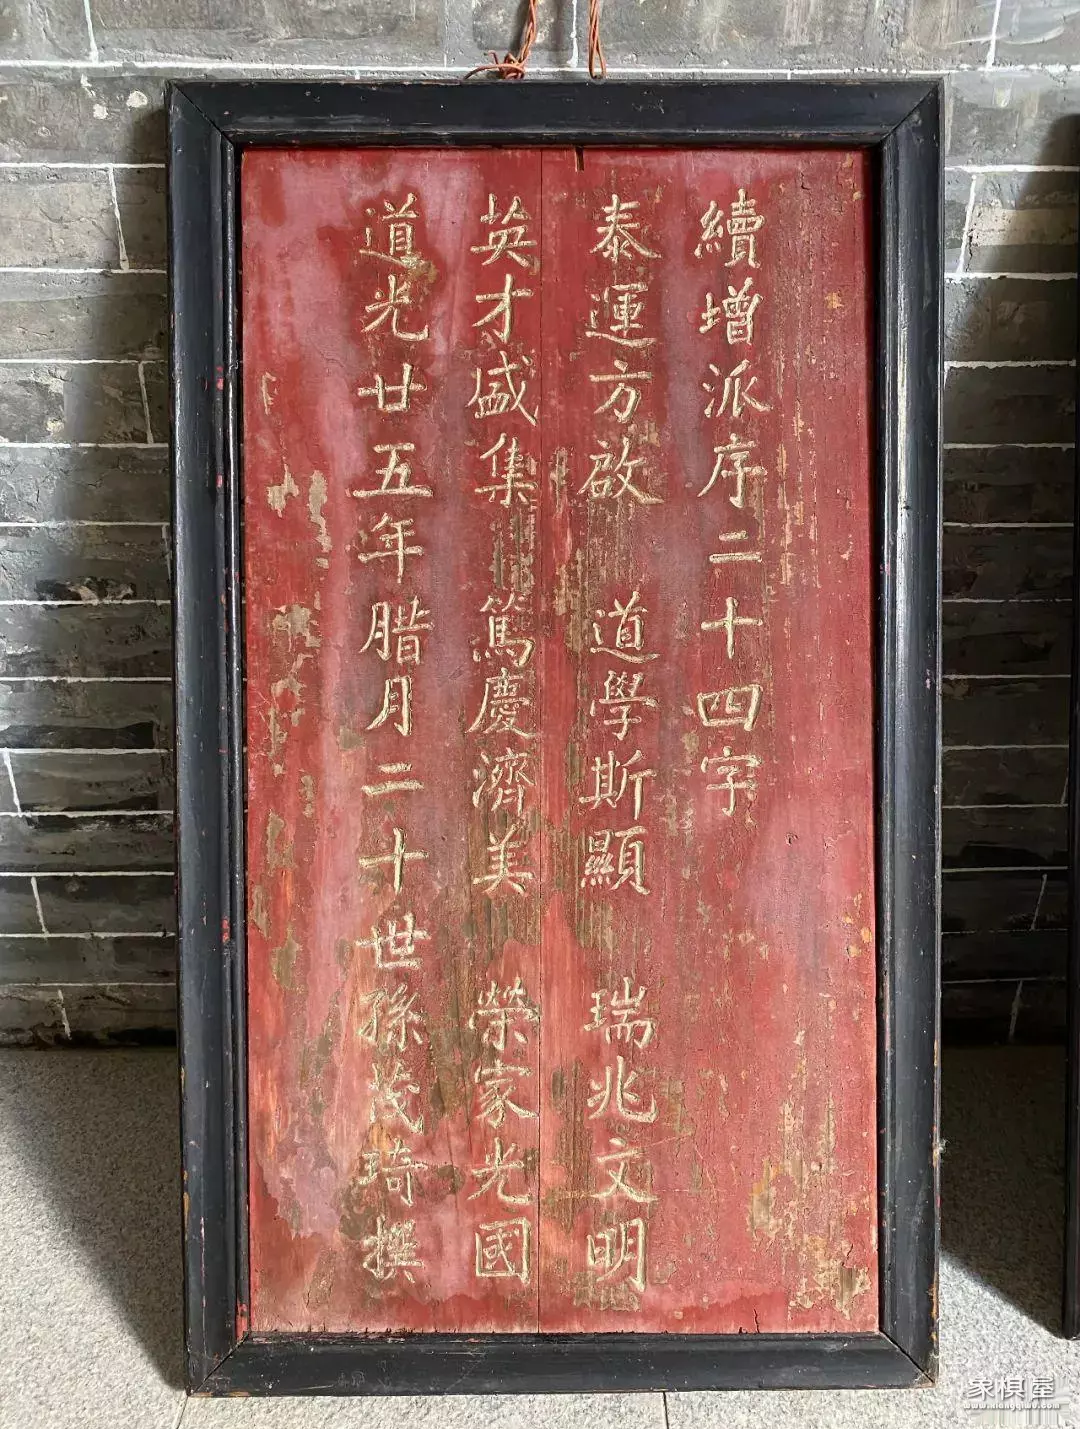 續增派序二十四字
泰運方啟 道學斯顯 瑞兆文明
英才盛集 篤慶濟美 榮家光國
道光廿五年腊月二十世孫茂琦撰
象棋屋
www.xiangqiwu.com